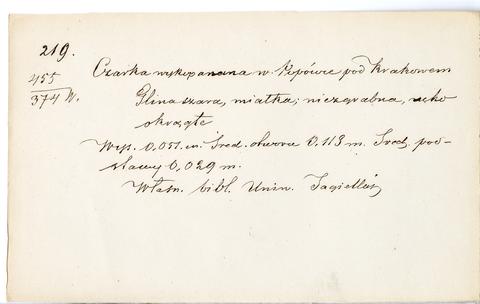 219.
455
374 W.
Czarka wykopanana w Popówce pod Krakowem
Glina szara, miałka; niezgrabna, ucho
okrągłe
Wys. 0,051 m. Śred. otworu 0,113 m. Śred. pod-
stawy 0,029 m.
Własn. bibl. Uniw. Jagielloń